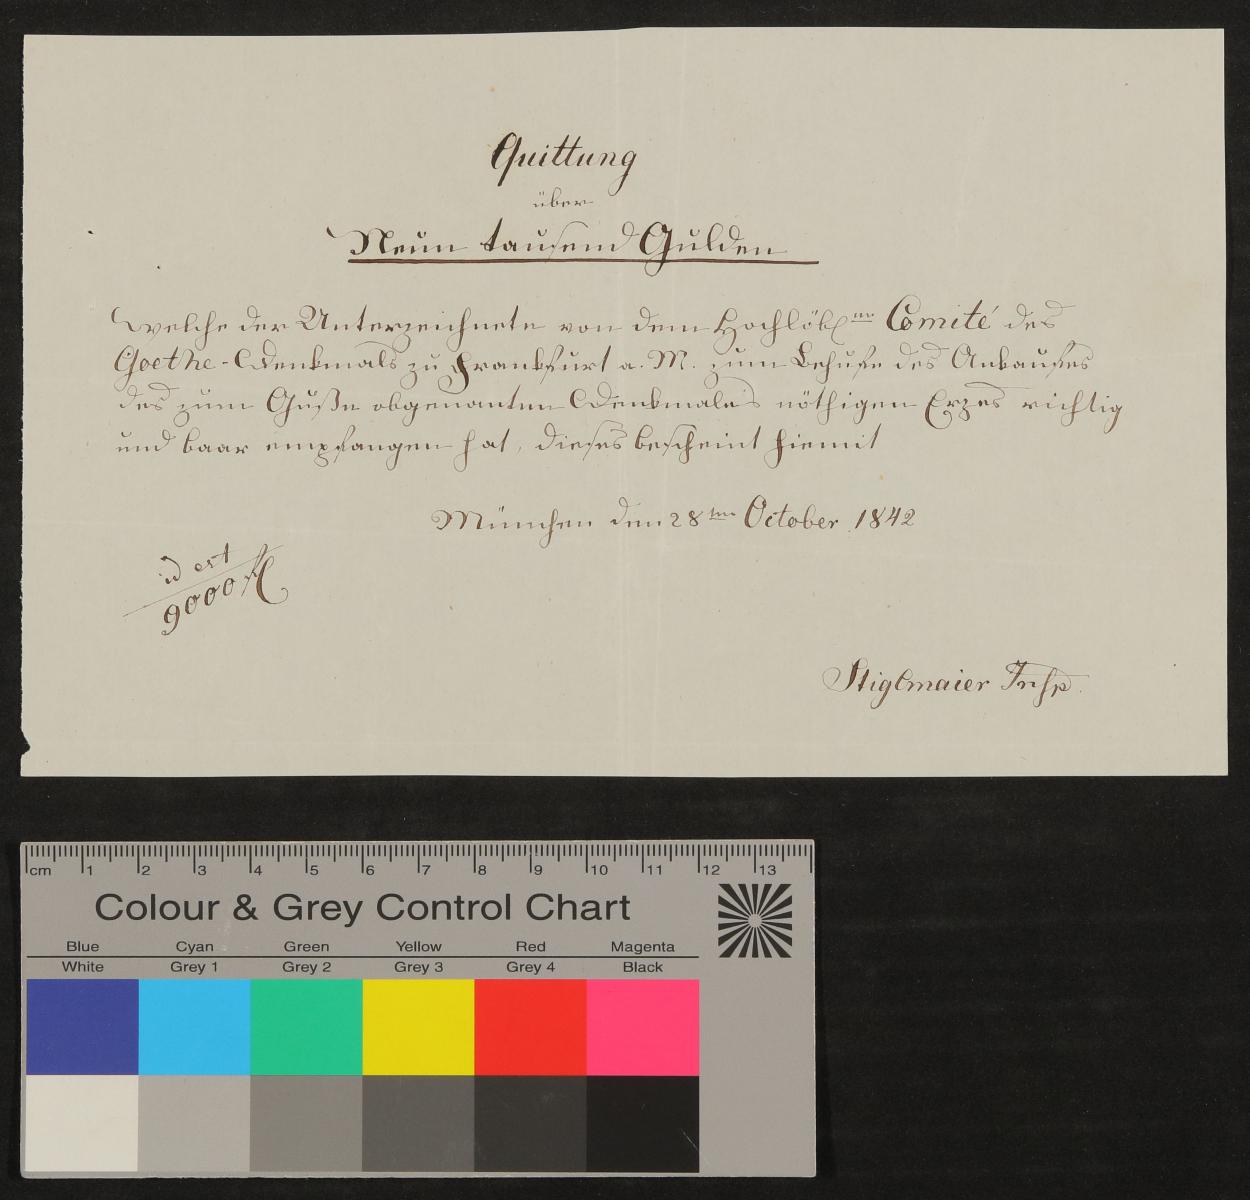 Quittung
über
Neun tausend Gulden
welche der Unterzeichnete von dem Hochlöbl<sup>en</sup> Comité des
Goethe-Denkmals zu Frankfurt a. M. zum Behufe des Ankaufes
des zum Guße obgenanten Denkmales nöthigen Erzes richtig
und baar empfangen hat, dieses bescheint hiemit
München den 28<sup>ten</sup> October 1842
id est
9000 fl
Stiglmaier Insp.
cm 1 2 3 4 5 6 7 8 9 10 11 12 13
Colour & Grey Control Chart
Blue Cyan Green Yellow Red Magenta
White Grey 1 Grey 2 Grey 3 Grey 4 Black